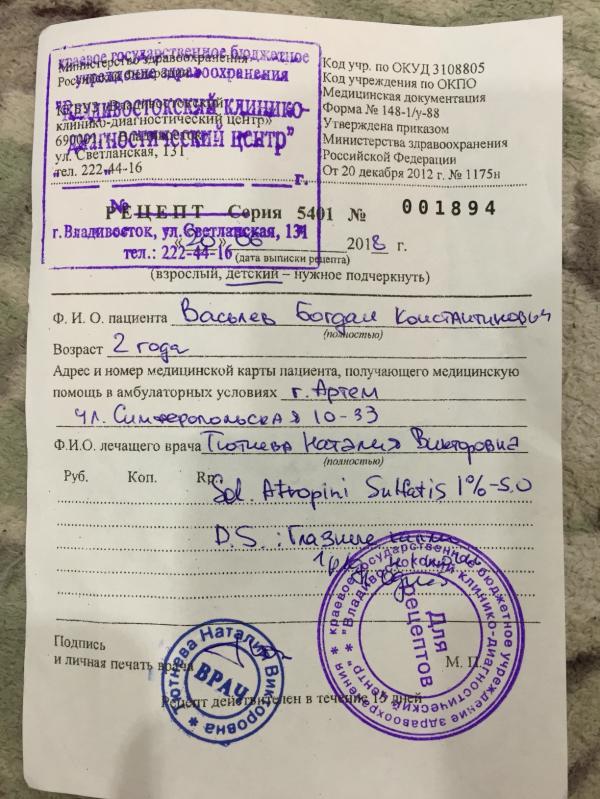 краевое государственное бюджетное
учреждение здравоохранения
"Владивостокский клинико-
диагностический центр"
г.
№
г.Владивосток, ул.Светланская, 131
тел.: 222-44-16
Министерство здравоохранения
Российской Федерации
КГБУЗ «Владивостокский
клинико-диагностический центр»
690001 Владивосток
ул. Светланская, 131
тел. 222-44-16
Код учр. по ОКУД 3108805
Код учреждения по ОКПО
Медицинская документация
Форма № 148-1/у-88
Утверждена приказом
Министерства здравоохранения
Российской Федерации
От 20 декабря 2012 г. № 1175н
РЕЦЕПТ Серия 5401 № 001894
«20» 06 2018 г.
(дата выписки рецепта)
(взрослый, детский – нужное подчеркнуть)
Ф. И. О. пациента Васылев Богдан Константинович
(полностью)
Возраст 2 года
Адрес и номер медицинской карты пациента, получающего медицинскую
помощь в амбулаторных условиях г. Артем
ул. Симферопольская 10-33
Ф.И.О. лечащего врача Тютнева Наталия Викторовна
(полностью)
Руб. Коп. Rp.:
Sol. Atropini Sulfatis 1% - 5.0
D.S.: Глазные капли
Подпись
и личная печать врача
М. П.
Рецепт действителен в течение 15 дней
Тютнева Наталия Викторовна
ВРАЧ
краевое государственное бюджетное учреждение здравоохранения
"Владивостокский клинико-диагностический центр"
Для рецептов